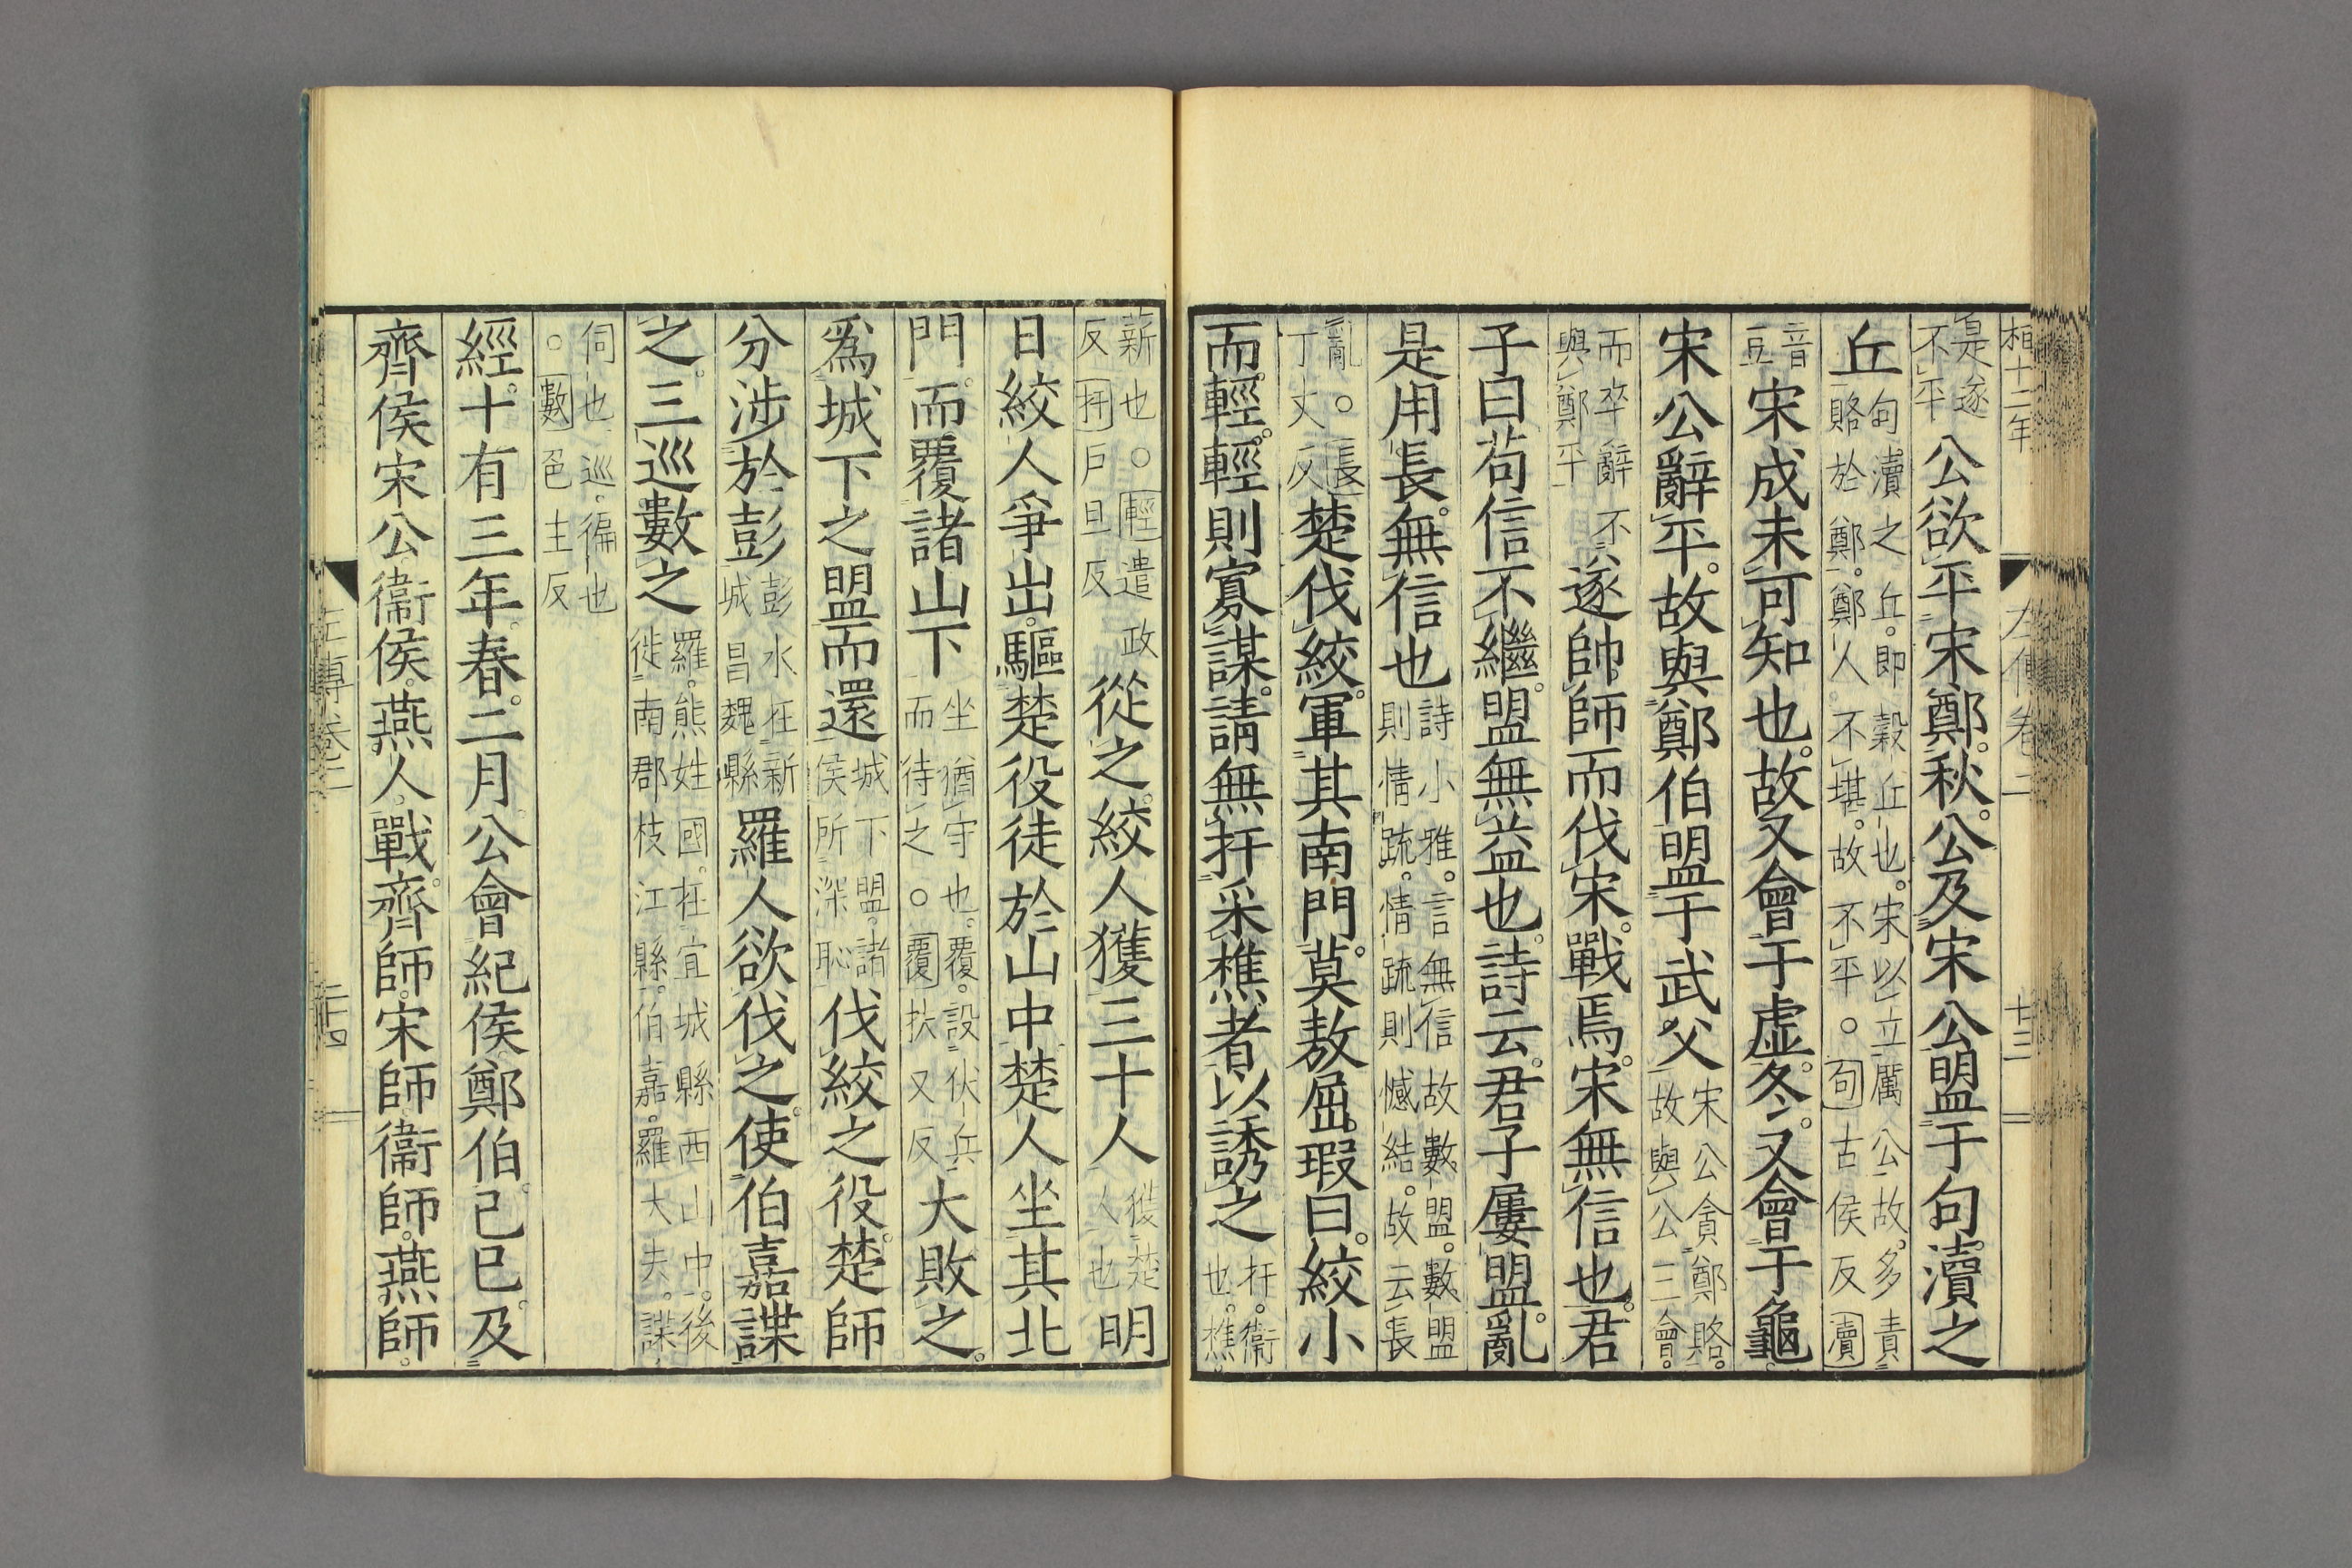 桓十二年 左傳卷二 廿三
是遂不平公欲平宋鄭。秋。公及宋公盟于句瀆之
丘句瀆之丘。即穀丘也。宋以立厲公故。多責賂於鄭。鄭人不堪。故不平。○句古侯反瀆
音豆宋成未可知也。故又會于虛。冬。又會于龜。
宋公辭平。故與鄭伯盟于武父宋公貪鄭賂。故與公三會。
而卒辭不與鄭平遂帥師而伐宋。戰焉。宋無信也。君
子曰。苟信不繼。盟無益也。詩云。君子屢盟。亂
是用長。無信也詩小雅。言無信故數盟。數盟則情疏。情疏則憾結。故云長
亂。○長丁丈反楚伐絞。軍其南門。莫敖屈瑕曰。絞小
而輕。輕則寡謀。請無扞采樵者以誘之扞。衞也。樵。
薪也。○輕遣政反扞戶旦反從之。絞人獲三十人獲楚人也明
日絞人爭出。驅楚役徒於山中。楚人坐其北
門。而覆諸山下坐猶守也。覆。設伏兵而待之。○覆扶又反大敗之。
爲城下之盟而還城下盟。諸侯所深恥伐絞之役。楚師
分涉於彭彭水在新城昌魏縣羅人欲伐之。使伯嘉諜
之。三巡數之羅。熊姓國。在宜城縣西山中。後徙南郡枝江縣。伯嘉。羅大夫。諜。
伺也。巡。徧也。○數色主反
經。十有三年。春。二月。公會紀侯鄭伯。己巳。及
齊侯宋公衞侯。燕人戰。齊師。宋師衞師。燕師。
左傳卷二 二十四